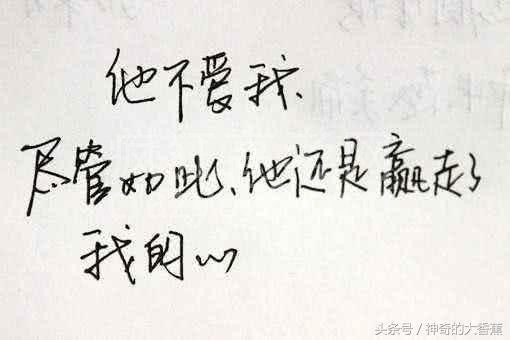 他不爱我、
尽管如此、他还是赢走了
我的心
头条号 / 神奇的大香蕉